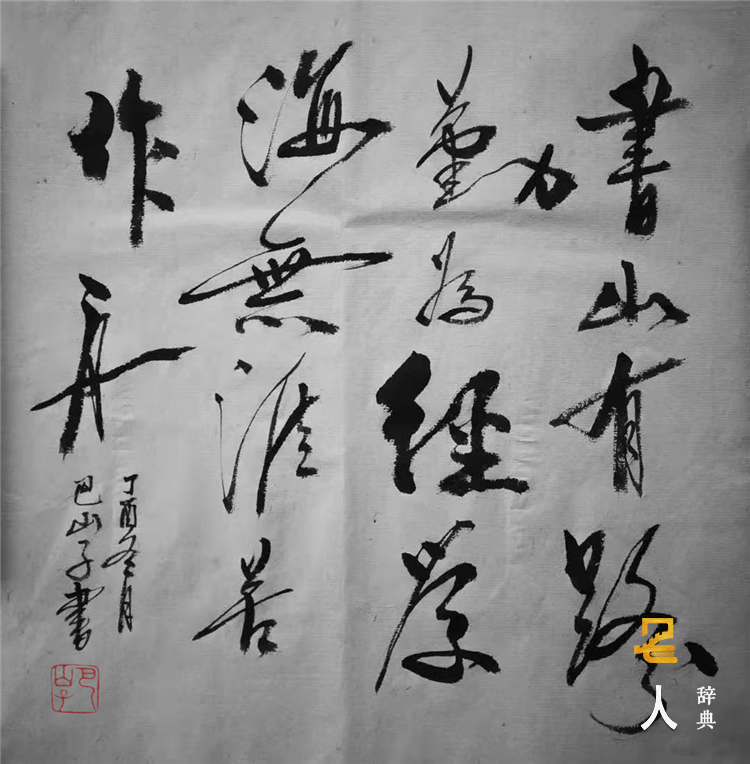 書山有路
勤為經學
海無涯苦
作舟
丁酉冬月
巴山子書
名人
辞典